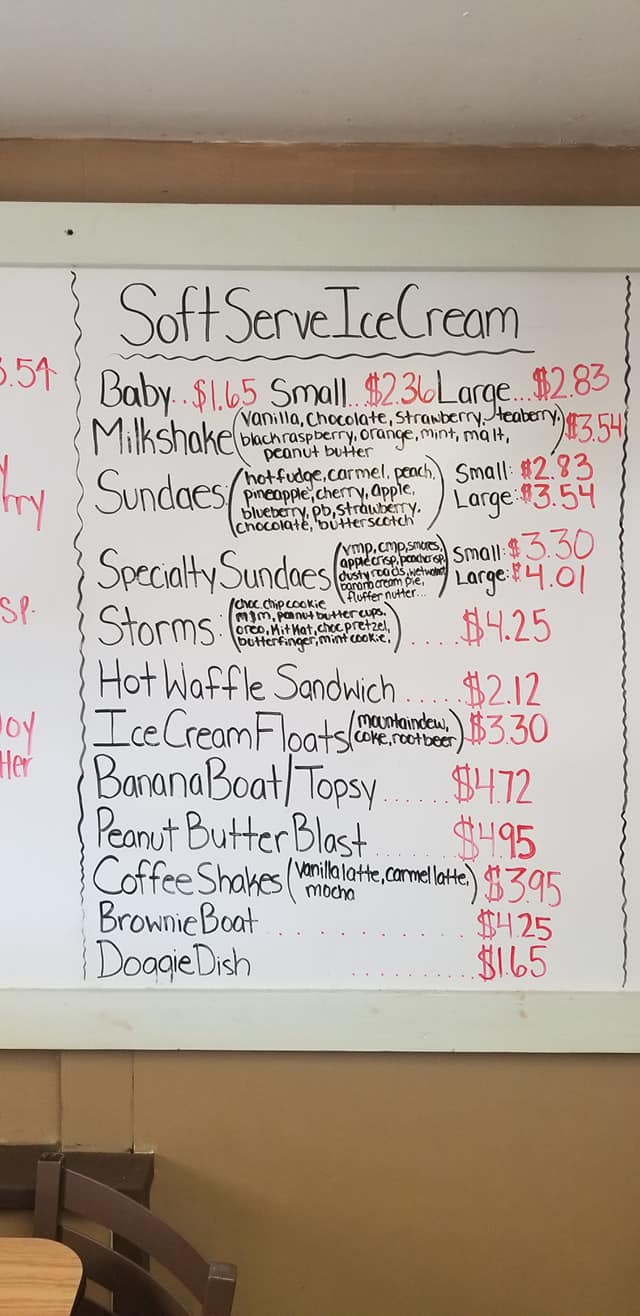 Soft Serve Ice Cream
Baby..$1.65 Small...$2.36 Large...$2.83
Milkshake (Vanilla, Chocolate, Strawberry, teaberry, black raspberry, orange, mint, malt, peanut butter) $3.54
Sundaes: (hot fudge, carmel, peach, pineapple, cherry, apple, blueberry, pb, strawberry, chocolate, butterscotch) Small: $2.83
Large: $3.54
Specialty Sundaes (vmp, cmp, smores, apple crisp, peach crisp, dusty roads, wet walnut, banana cream pie, fluffer nutter...) Small: $3.30
Large: $4.01
Storms: (choc. chip cookie, m&m, peanut butter cups, oreo, Kit Kat, choc pretzel, butterfinger, mint cookie,).....$4.25
Hot Waffle Sandwich.......$2.12
Ice Cream Floats (mountain dew, coke, root beer) $3.30
Banana Boat/Topsy.......$4.72
Peanut Butter Blast.......$4.95
Coffee Shakes (vanilla latte, carmel latte, mocha) $3.95
Brownie Boat..........$4.25
Doggie Dish........$1.65